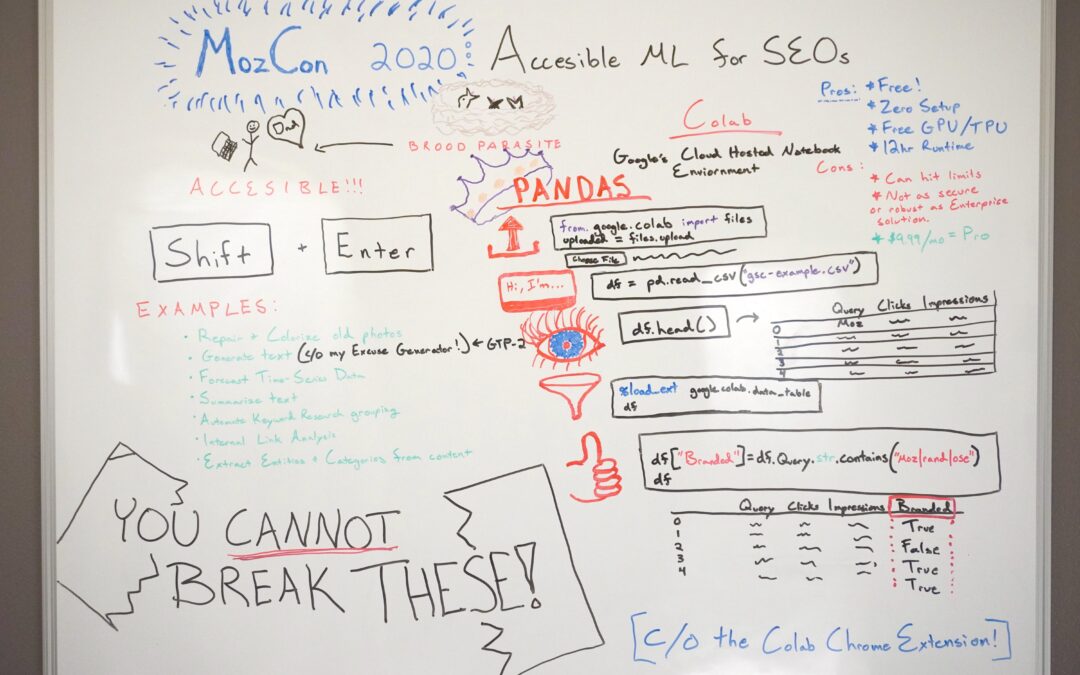 MozCon 2020
Accesible ML for SEOs
Dad
BROOD PARASITE
ACCESIBLE!!!
Shift + Enter
EXAMPLES:
• Repair + Colorize old photos
• Generate text (c/o my Excuse Generator!) ← GTP-2
• Forecast Time-Series Data
• Summarize text
• Automate Keyword Research grouping
• Internal Link Analysis
• Extract Entities + Categories from content
YOU CANNOT
BREAK THESE!
Colab
Google's Cloud Hosted Notebook
Enviornment
Pros: * Free!
* Zero Setup
* Free GPU/TPU
* 12hr Runtime
Cons:
* Can hit limits
* Not as secure
or robust as Enterprise
solution.
* $9.99/mo = Pro
PANDAS
from google.colab import files
uploaded = files.upload
Choose File
Hi, I'm...
df = pd.read_csv("gsc-example.csv")
df.head()
Query Clicks Impressions
0 Moz
1
2
3
4
%load_ext google.colab.data_table
df
df["Branded"]=df.Query.str.contains("Moz|rand|ose")
df
Query Clicks Impressions Branded
0 True
1
2 False
3 True
4 True
[c/o the Colab Chrome Extension!]